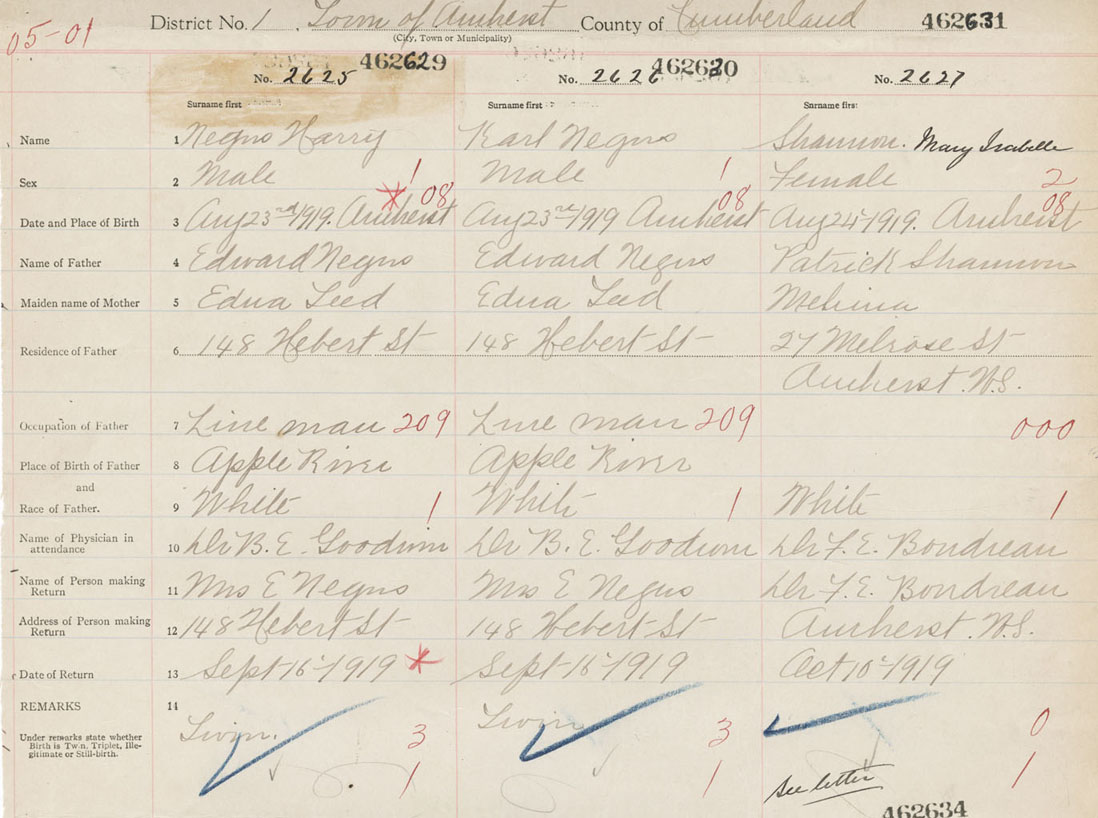 05-01
District No. 1. Town of Amherst County of Cumberland 462631
(City, Town or Municipality)
462629 462630
No. 2625 No. 2626 No. 2627
Surname first Surname first Surname first
Name 1 Negus Harry Karl Negus Shannon. Mary Isabelle
Sex 2 Male 1 Male 1 Female 2
08 08 08
Date and Place of Birth 3 Aug 23rd 1919. Amherst Aug 23rd 1919 Amherst Aug 24 1919. Amherst
Name of Father 4 Edward Negus Edward Negus Patrick Shannon
Maiden name of Mother 5 Edna Leed Edna Leed
Residence of Father 6 148 Hebert St 148 Hebert St 27 Melrose St
Amherst. N.S.
Occupation of Father 7 Line man 209 Line man 209 000
Place of Birth of Father 8 Apple River Apple River
and
Race of Father. 9 White 1 White 1 White 1
Name of Physician in
attendance 10 Dr B. E. Goodwin Dr B. E. Goodwin Dr F. E. Boudreau
Name of Person making
Return 11 Mrs E Negus Mrs E Negus Dr F. E. Boudreau
Address of Person making
Return 12 148 Hebert St 148 Hebert St Amherst. N.S.
Date of Return 13 Sept 16 1919 Sept 16 1919 Oct 10 1919
REMARKS 14
Twin. 3 Twin 3 0
Under remarks state whether
Birth is Twin, Triplet, Ille-
gitimate or Still-birth.
1 1 See letter 1
462634